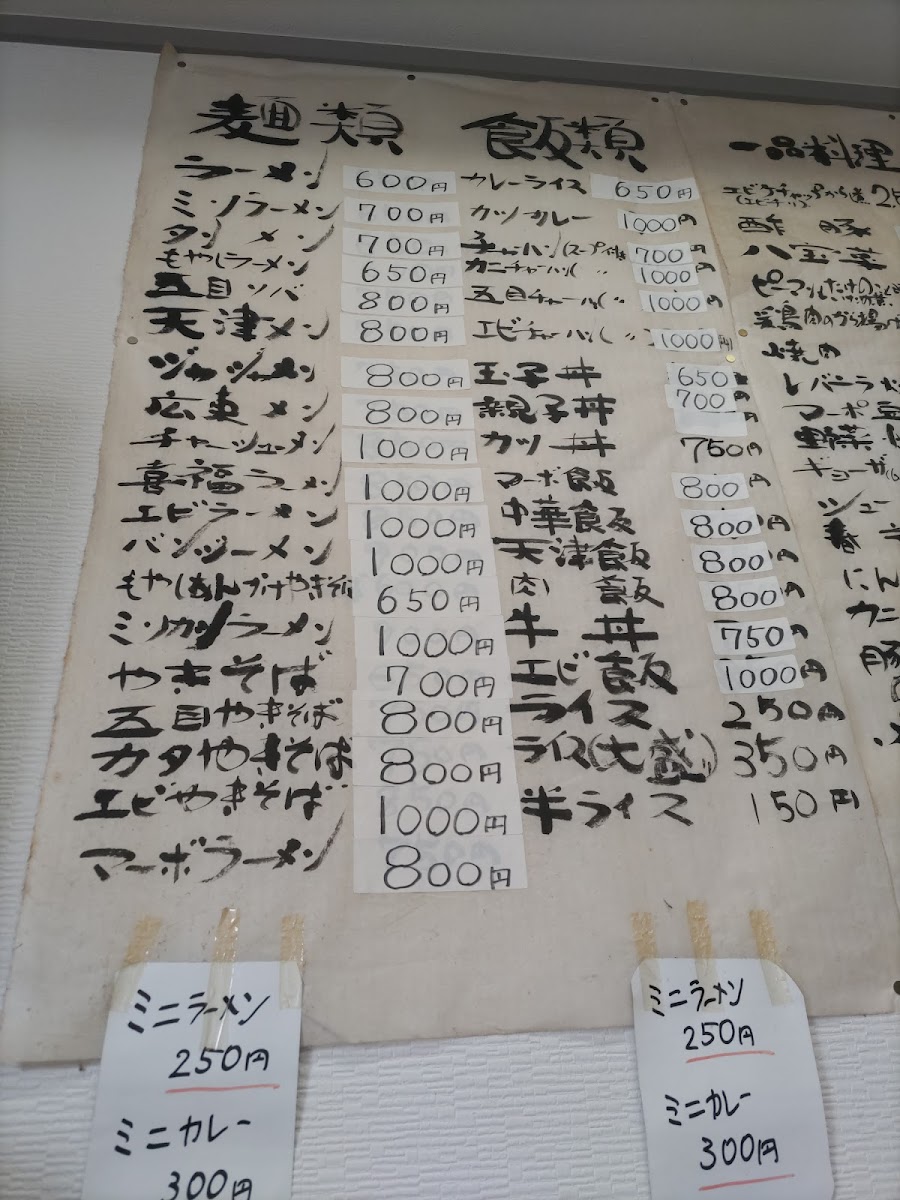 麺類
ラーメン 600円
ミソラーメン 700円
タンメン 700円
もやしラーメン 650円
五目ソバ 800円
天津メン 800円
ジャージャーメン 800円
広東メン 800円
チャーシューメン 1000円
喜福ラーメン 1000円
エビラーメン 1000円
バンジーメン 1000円
もやしあんかけやきそば 650円
ミソカツラーメン 1000円
やきそば 700円
五目やきそば 800円
カタやきそば 800円
エビやきそば 1000円
マーボラーメン 800円
飯類
カレーライス 650円
カツカレー 1000円
チャーハン(スープ付 700円
カニチャーハン( 〃 1000円
五目チャーハン( 〃 1000円
エビチャーハン( 〃 1000円
玉子丼 650
親子丼 700円
カツ丼 750円
マーボ飯 800円
中華飯 800円
天津飯 800円
肉飯 800円
牛丼 750円
エビ飯 1000円
ライス 250円
ライス(大盛) 350円
半ライス 150円
一品料理
酢豚
八宝菜
焼肉
ミニラーメン
250円
ミニカレー
300円
ミニラーメン
250円
ミニカレー
300円